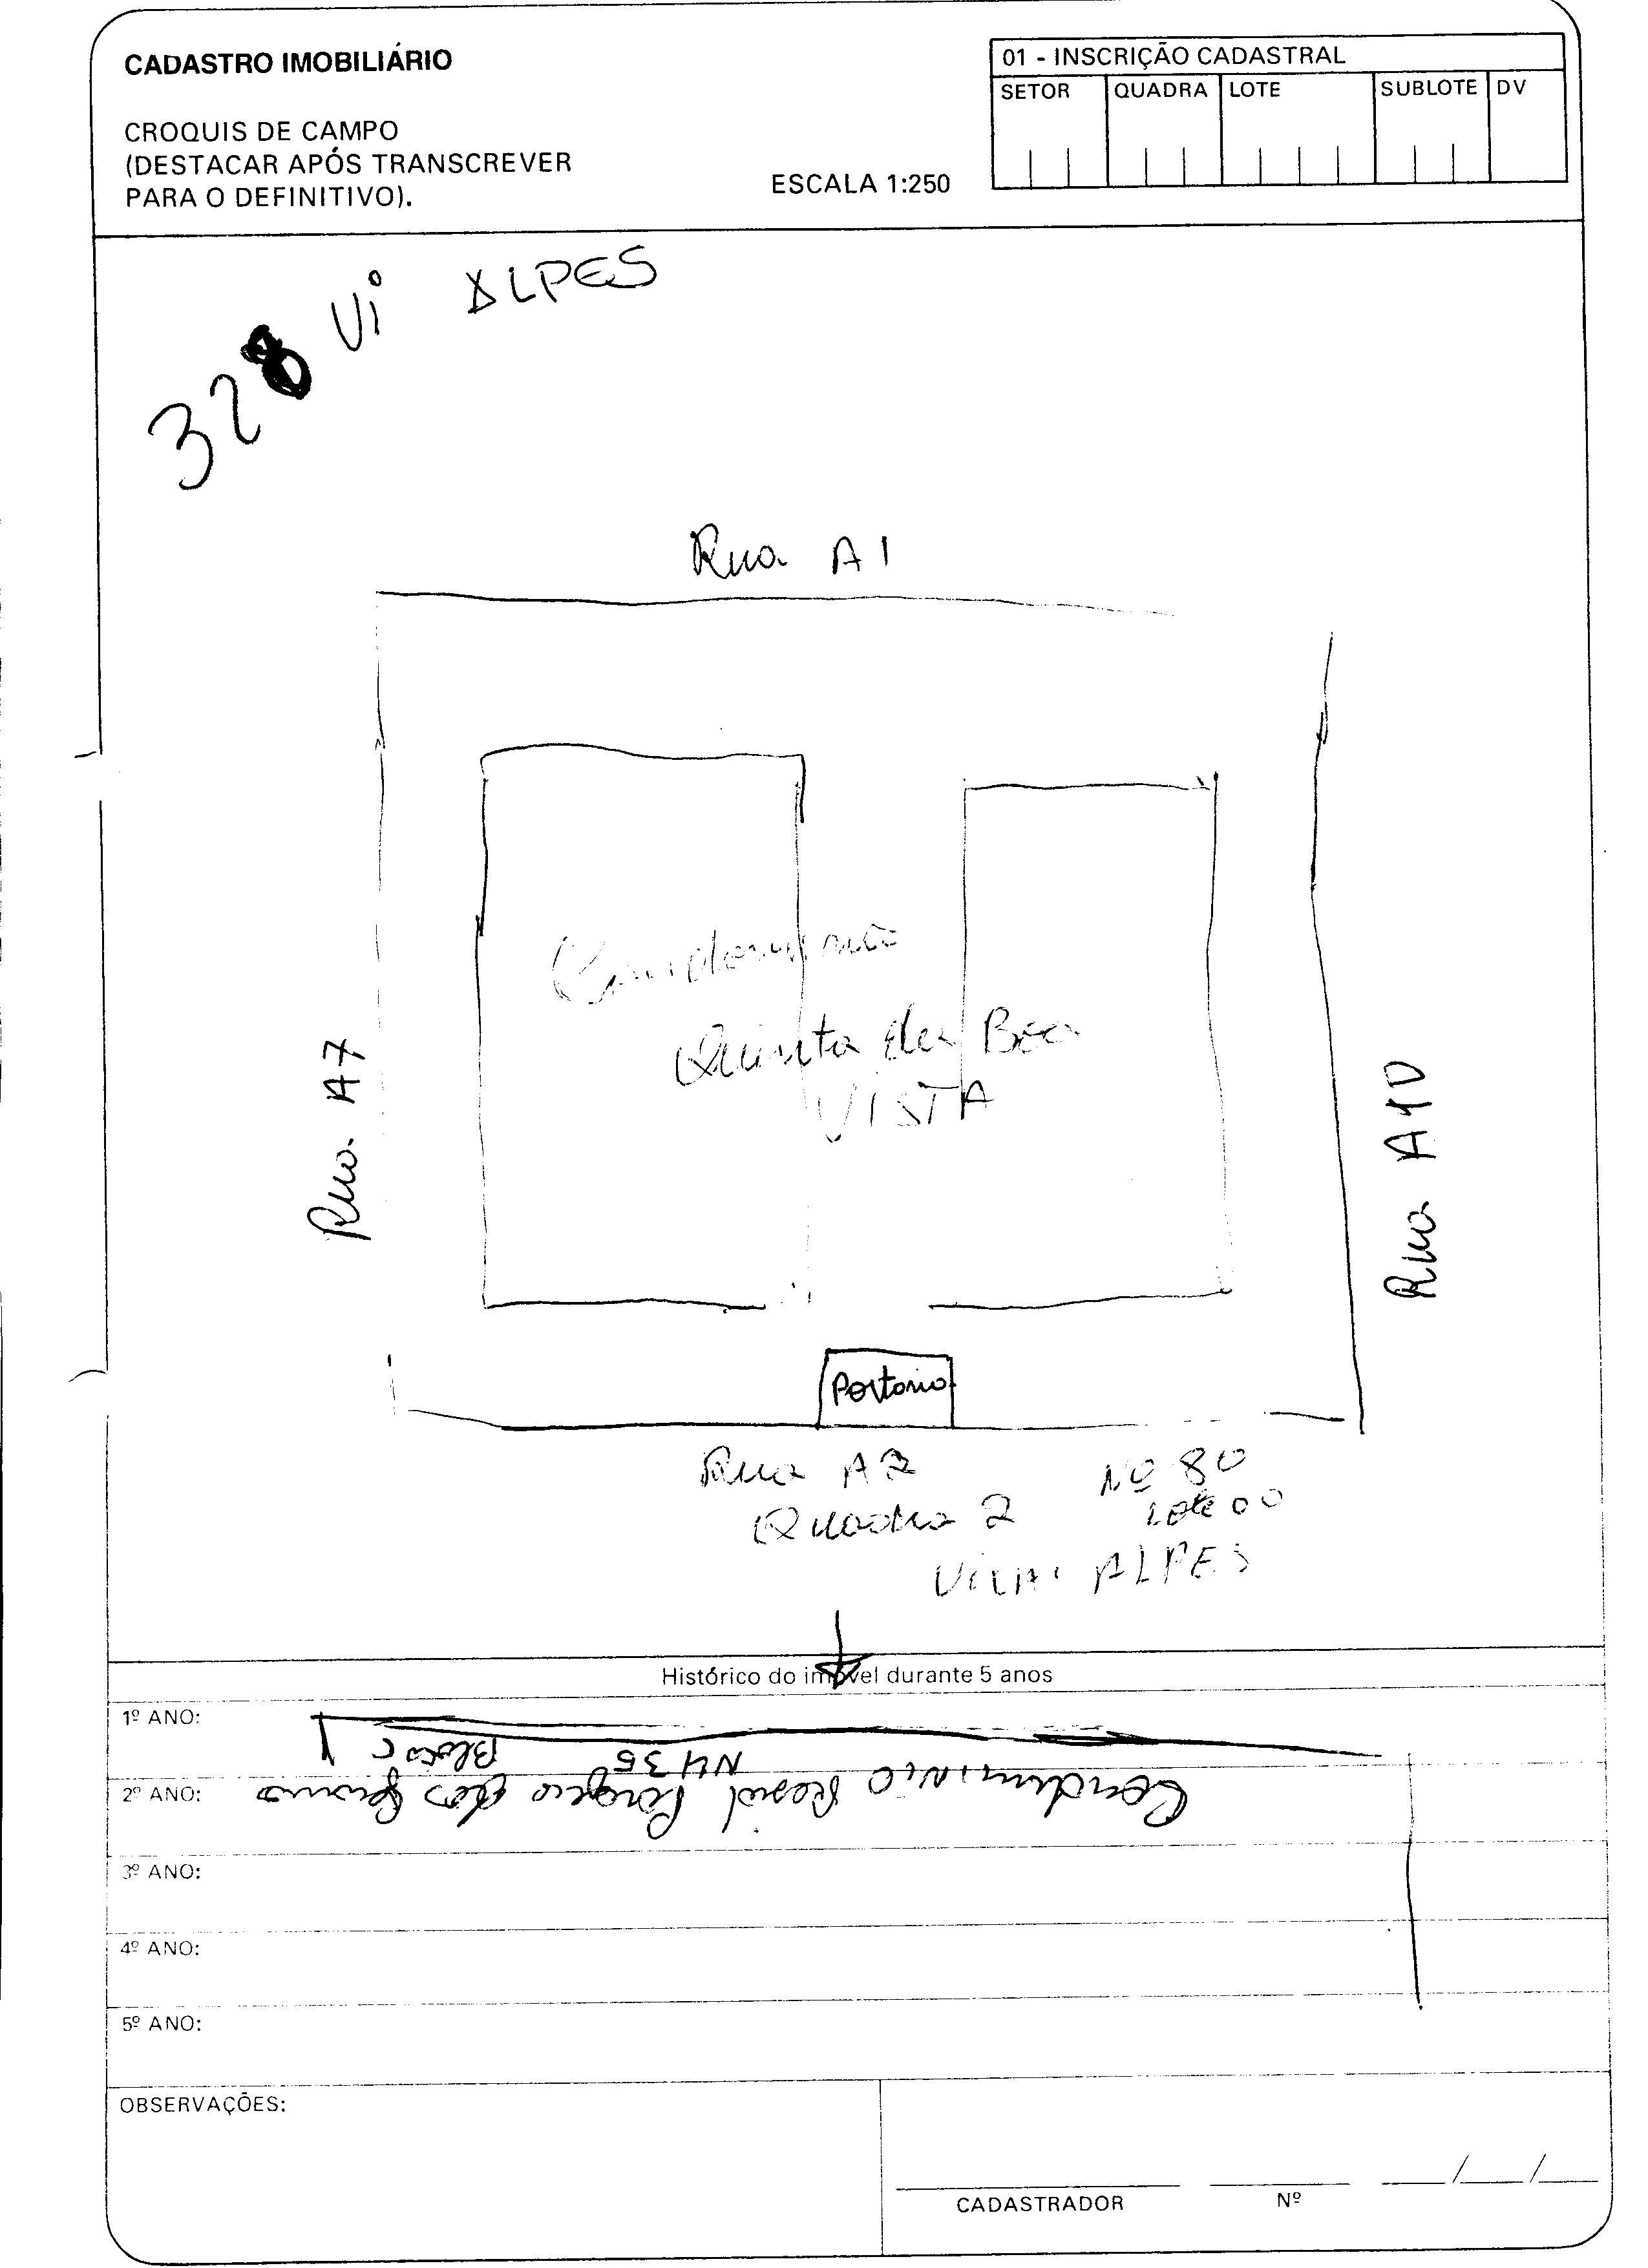 CADASTRO IMOBILIÁRIO
CROQUIS DE CAMPO
(DESTACAR APÓS TRANSCREVER
PARA O DEFINITIVO).
ESCALA 1:250
01 - INSCRIÇÃO CADASTRAL
SETOR QUADRA LOTE SUBLOTE DV
328 Vi ALPES
Rua A1
Rua A7
Condominio
Quinta da Boa
VISTA
Rua A10
Portaria
Rua A2 Nº 80
Quadra 2 Lote 00
VILA ALPES
Histórico do imóvel durante 5 anos
1º ANO:
Bloco C
N435
2º ANO:
Condominio Resid Parque dos
3º ANO:
4º ANO:
5º ANO:
OBSERVAÇÕES:
CADASTRADOR Nº